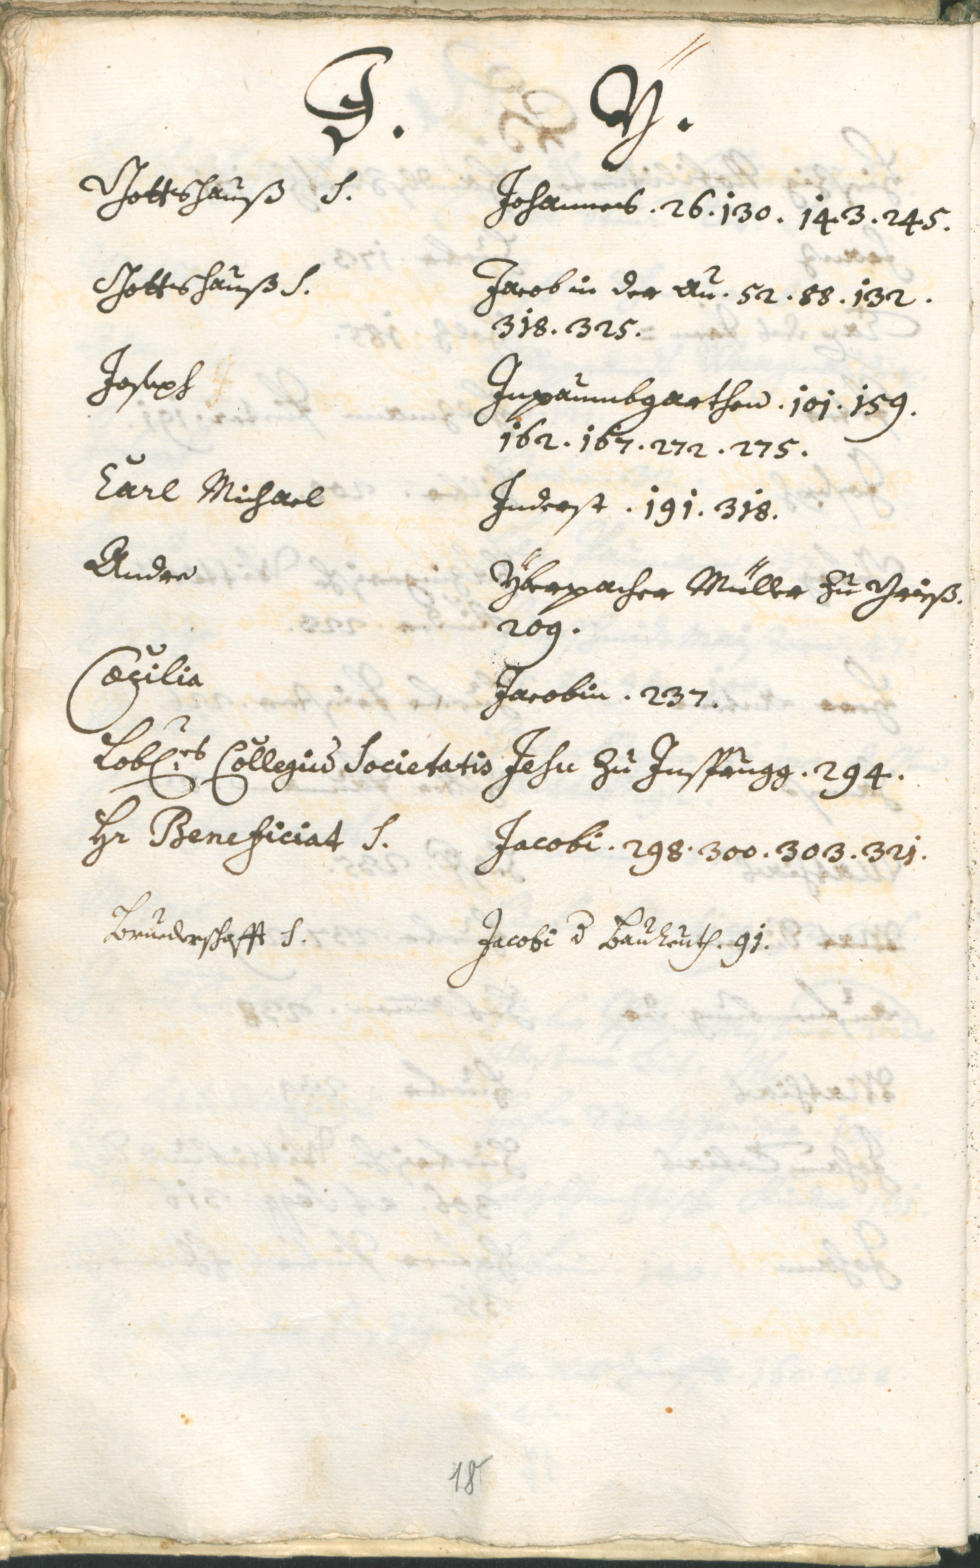 J. Y.
Gottshauß S. Johannes . 26 . 130 . 143 . 245 .
Gottshauß S. Jacob in der Au . 52 . 88 . 132 .
318 . 325 .
Joseph Inpäumbgarthen . 101 . 159 .
162 . 167 . 272 . 275 .
Carl Michael Inderst . 191 . 318 .
Andre Yberpacher Müller zu Grieß .
209 .
Cæcilia Jacobin . 237 .
Collegiũ Societatis Jesu zu Insprugg . 294 .
Hr Beneficiat S. Jacobi . 298 . 300 . 303 . 321 .
Bruederschafft S. Jacobi d . 91 .
18